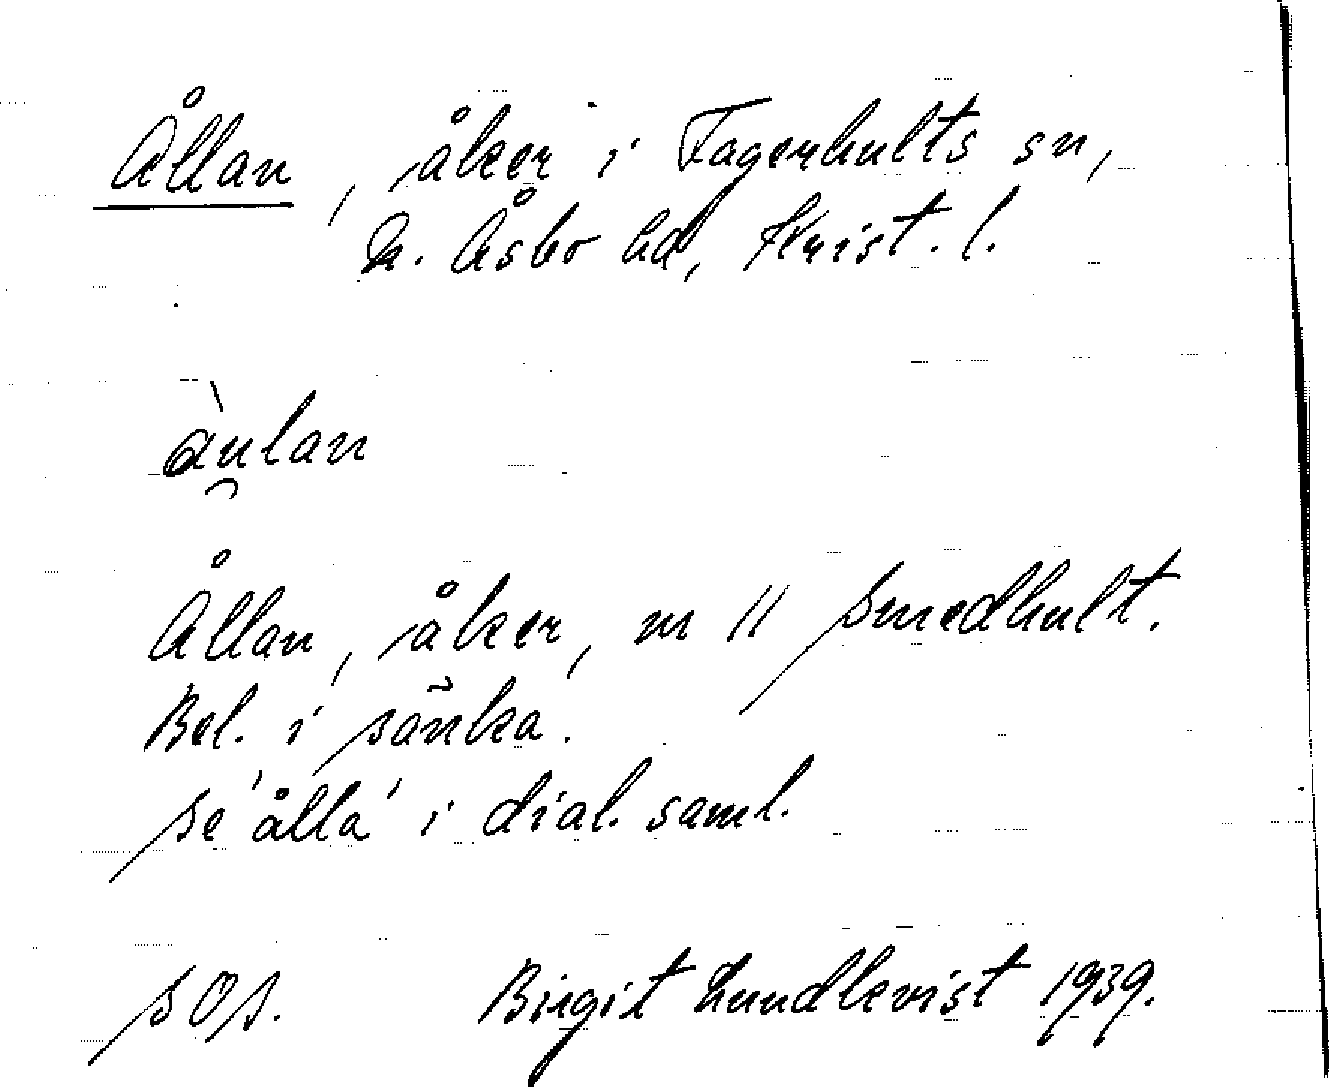 Ållan, åker i Fagerhults sn,
N. Åsbo hd, Krist. l.
àu̯lan
Ållan, åker, m 11 Smedhult.
Bel. i sänka.
Se 'ålla' i dial. saml.
SOS. Birgit Lundkvist 1939.